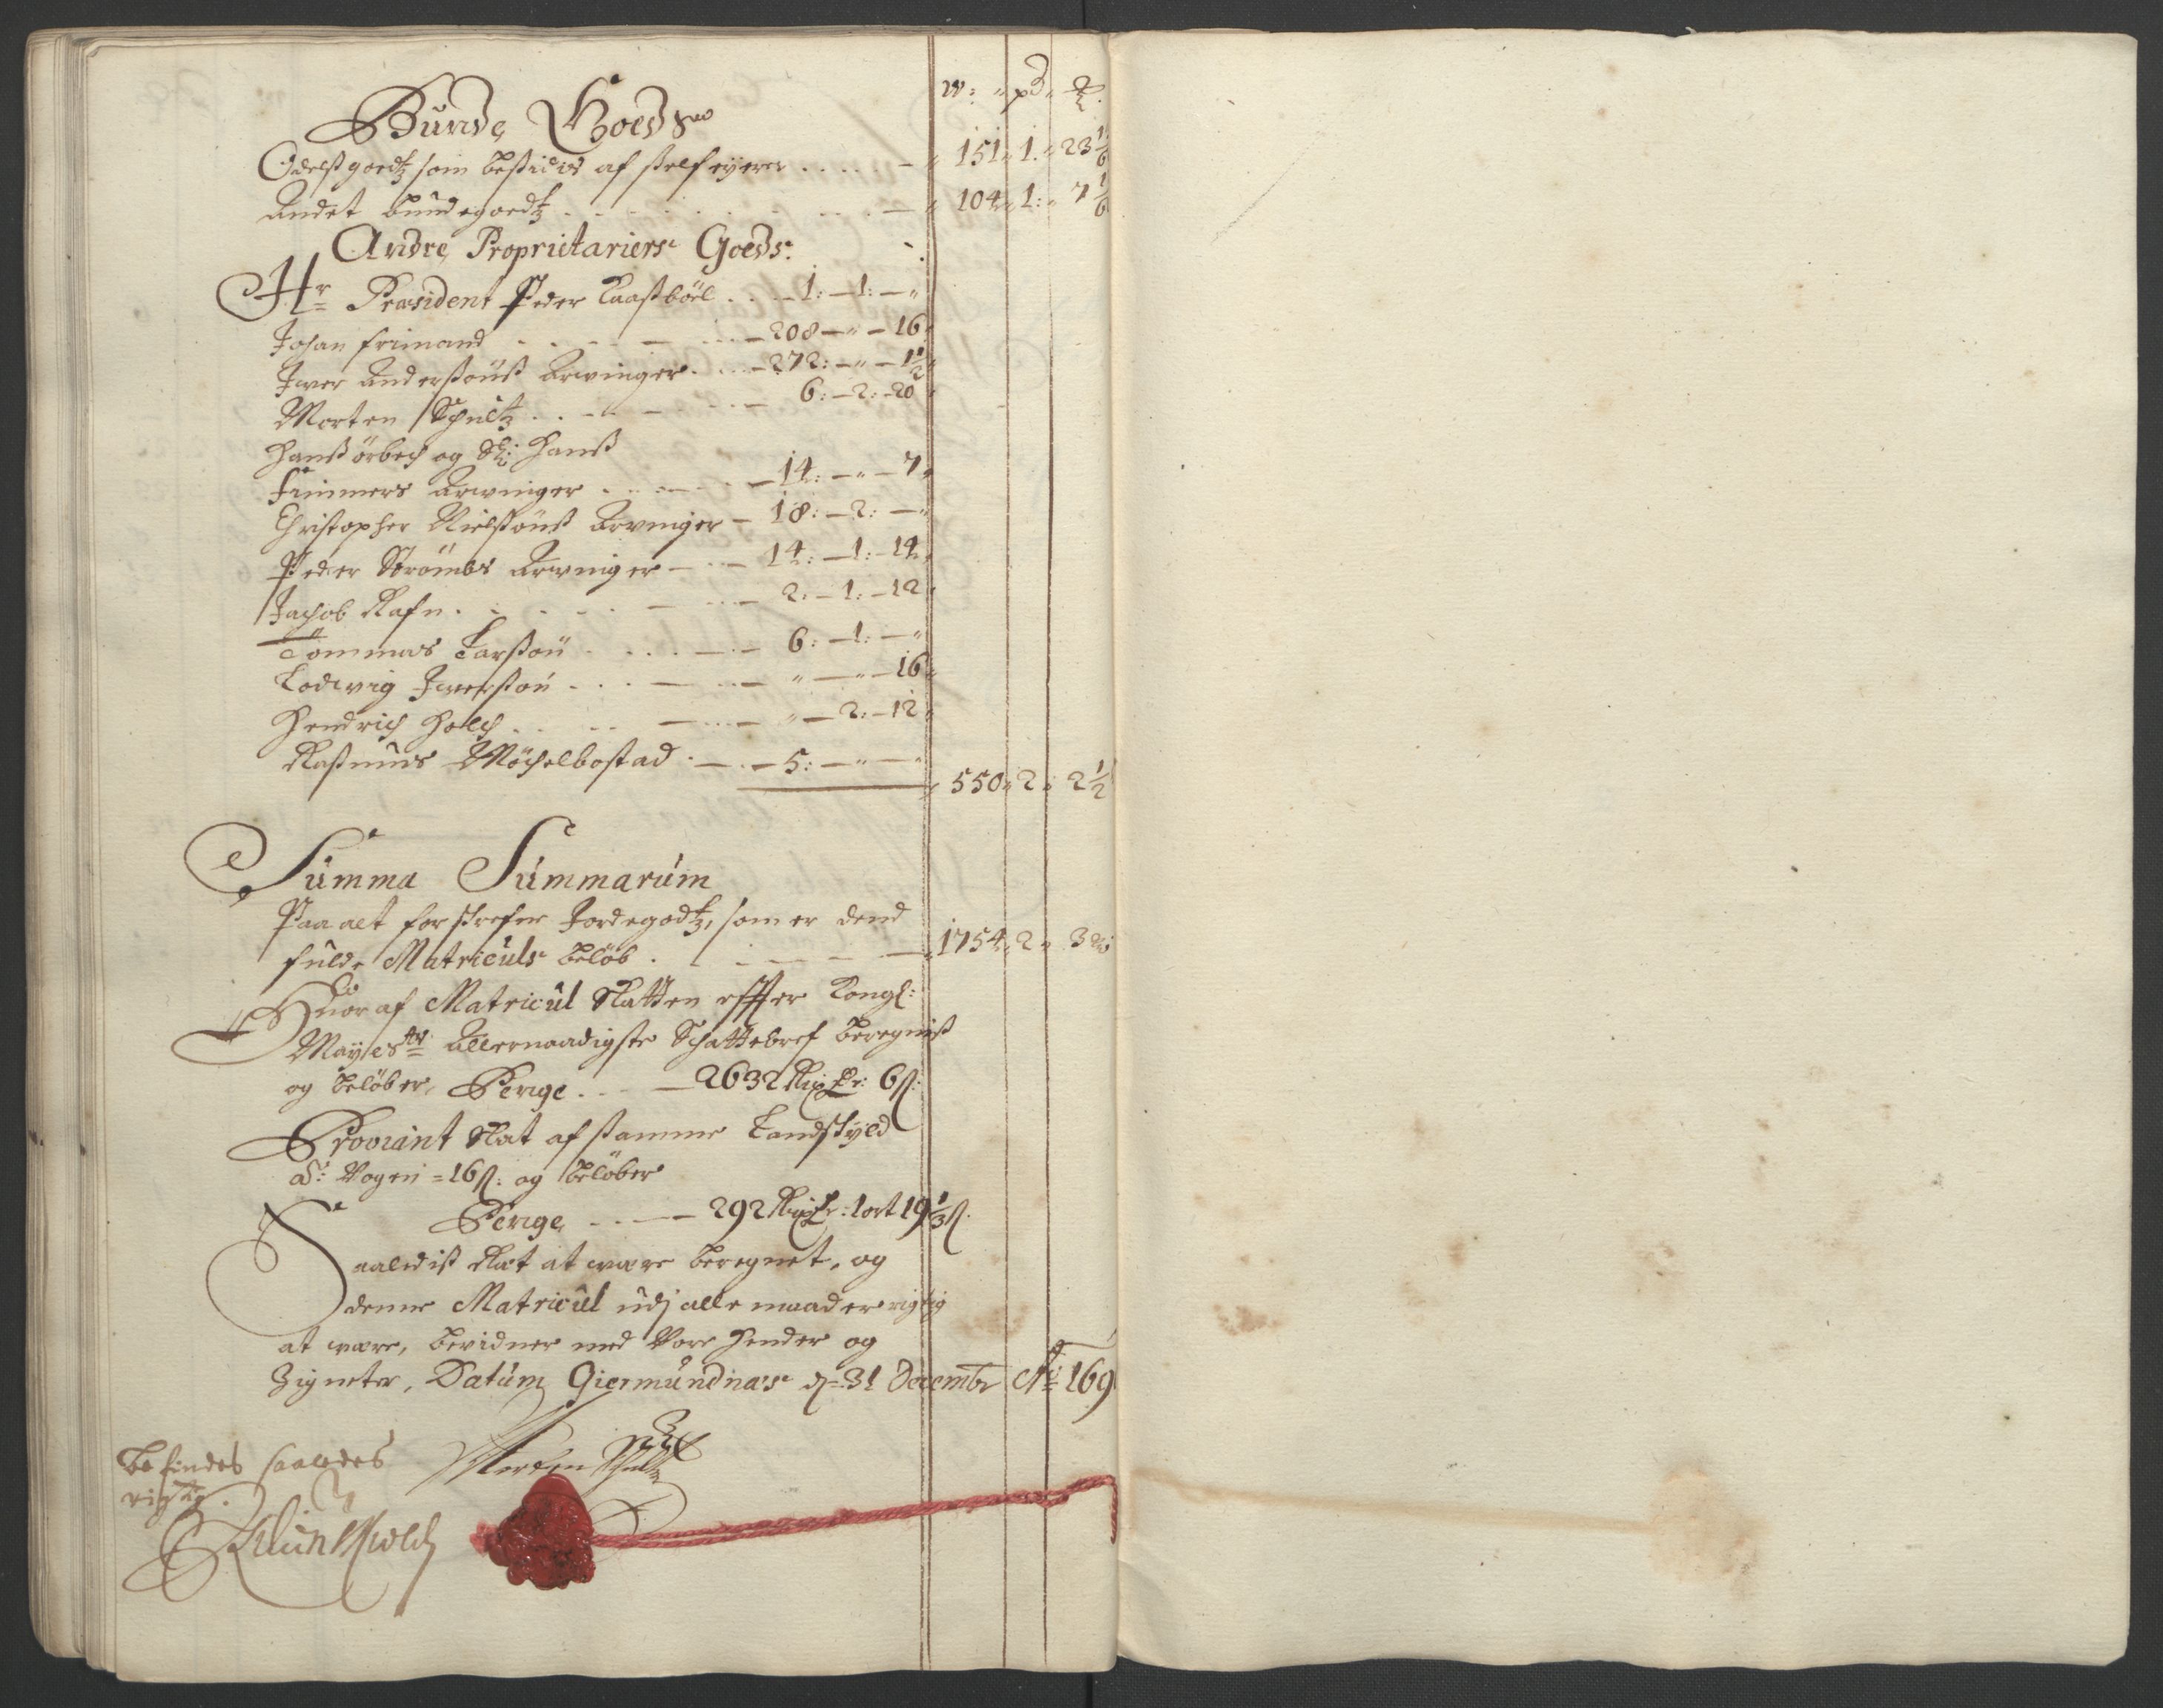 w: pd ℔.
Bunde Goeds
Odelssgoedtz som besidis af sselfeyere . . . . . — 151 1. 23 1/6
Andet bundegoedtz . . . . . — 104 1: 7 1/6
Andre Proprietariers Goeds:
Hr Præsident Peder — 1: — 1: — "
Johan frimand — 208 — " — 16
Iwer Anderssönss Arwinger — 272: — " — 1 1/2
Morten Schultz — 6: — 2: — 20
Hanss örbech og Sl: Hanss
fimmers Arwinger — 14: — " — 7
Christopher Nielssönss Arvinger — 18: — 2: — "
Peder Strömbs Arwinger — 14: — 1: — 14
Jachob Rafn — 2: — 1: — 12
Tommas Larssön — 6: — 1: — "
Lodwig Iwerssön — " — " — 16
Hendrich Holch — " — 2: — 12
Rassmus Möchelbostad — 5: — " — "
550 2 2 1/2
Summa Summarum
Paa alt forskrefne Jordegodtz, som er dend
fulde Matriculs beløb . — 1754 2 3
Huor af Matricul Skatten effter Kongl:
Mayests Allernaadigste Schattebref beregniss
og beløber, Penge . . . — 2632 Rixdr: 6 ß:
Proviant Skat af samme Landskyld
a: Vogen = 16 ß: og beløber
Penge . . — 292 Rixdr: 1 ort 19 1/3 ß.
Saalediss Ret at were beregnet, og
denne Matricul udj alle maader rigtig
at were, bevidner med Vore Hender og
Zigneter, Datum Giermundnæs d: 31 Decembr Ao 169
Befindes saaledes
rigtig.
Morten Schultz